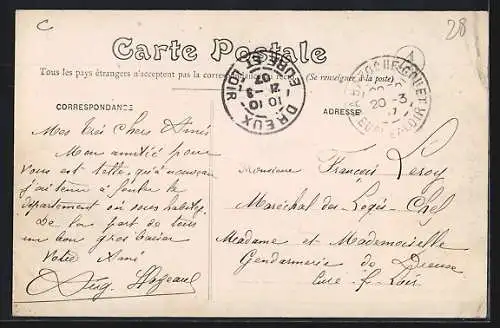 C
28
Carte Postale
A
Tous les pays étrangers n'acceptent pas la correspondance (Se renseigner à la poste)
CORRESPONDANCE
ADRESSE
DREUX
EURE-ET-LOIR
10 10
21 -3
07
20 -3
EURE-ET-LOIR
Mes très chers Amis
Mon amitié pour
vous est telle, qu'a nouveau
j'ai tenu à
département où vous habitez
De la part de tous
un bon gros baiser
Votre Ami
Aug.
Monsieur François Leroy
Maréchal des Logis-Chef
Madame et Mademoiselle
Gendarmerie de
Eure-&-Loir